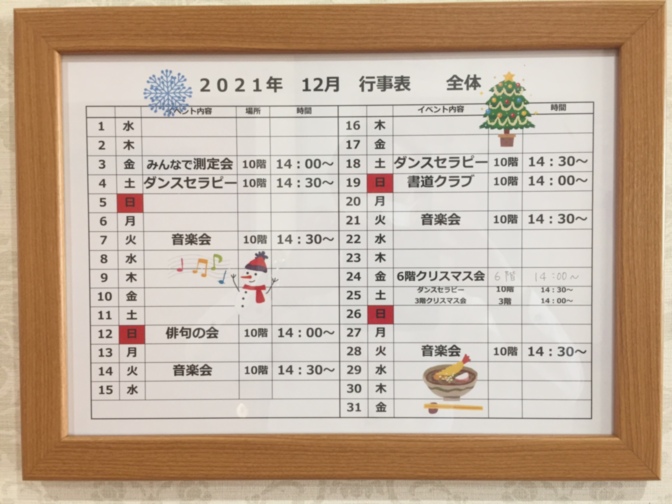 2021年 12月 行事表 全体
イベント内容 場所 時間
1 水
2 木
3 金 みんなで測定会 10階 14:00～
4 土 ダンスセラピー 10階 14:30～
5 日
6 月
7 火 音楽会 10階 14:30～
8 水
9 木
10 金
11 土
12 日 俳句の会 10階 14:00～
13 月
14 火 音楽会 10階 14:30～
15 水
イベント内容 時間
16 木
17 金
18 土 ダンスセラピー 10階 14:30～
19 日 書道クラブ 10階 14:00～
20 月
21 火 音楽会 10階 14:30～
22 水
23 木
24 金 6階クリスマス会 6階 14:00～
25 土 ダンスセラピー 10階 14:30～
3階クリスマス会 3階 14:00～
26 日
27 月
28 火 音楽会 10階 14:30～
29 水
30 木
31 金